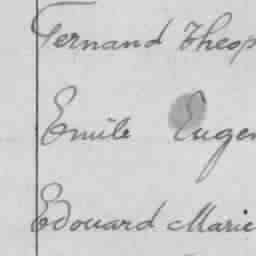 Fernand Theop
Emile Eugen
Edouard Marie